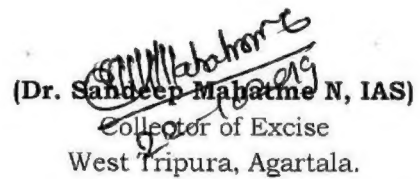 (Dr. Sandeep Mahatme N, IAS)
Collector of Excise
West Tripura, Agartala.